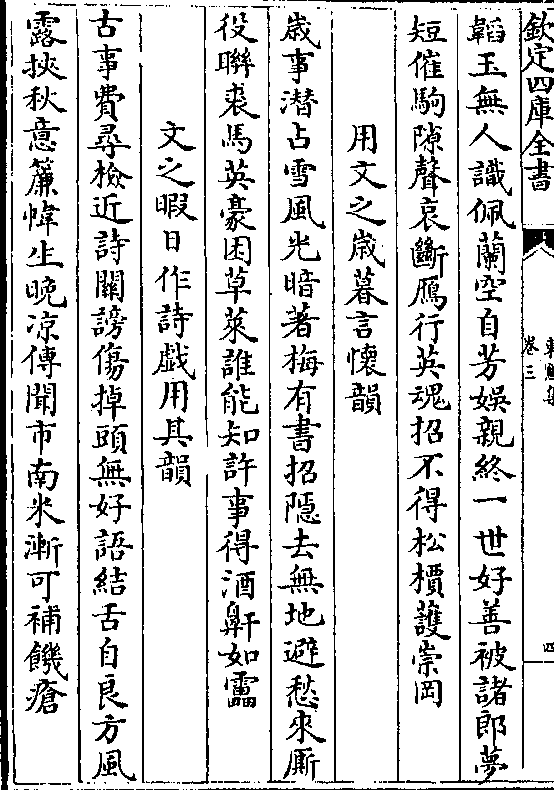 欽定四庫全書
卷三
四
韜玉無人識佩蘭空自芳娛親終一世好善被諸郎夢
短催駒隙聲哀斷鴈行英魂招不得松檟䕶崇岡
用文之歳暮言懷韻
歳事潜占雪風光暗著梅有書招隠去無地避愁來厮
役聯裘馬英豪困草萊誰能知許事得酒鼾如靁
文之暇日作詩戯用其韻
古事費尋檢近詩關謗傷掉頭無好語結舌自良方風
露挾秋意簾幃生晚凉傳聞市南米漸可補饑瘡